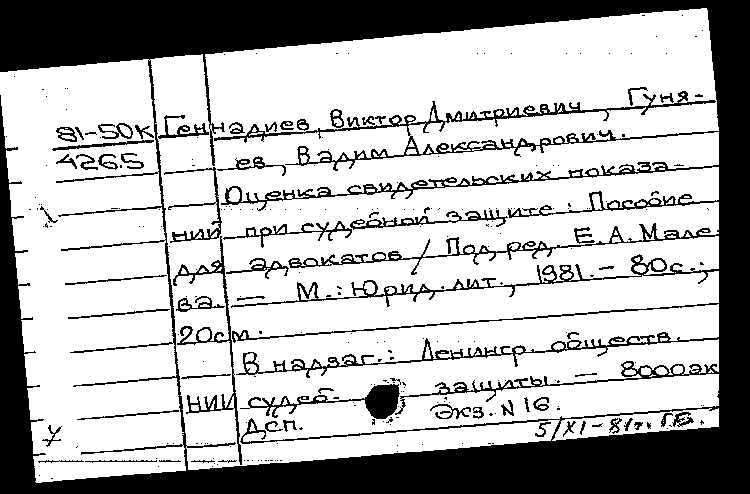 81-50К Геннадиев, Виктор Дмитриевич, Гуня-
4265 ев, Вадим Александрович.
Оценка свидетельских показа-
ний при судебной защите: Пособие
для адвокатов / Под ред. Е.А.Мале
ва. — М.: Юрид. лит., 1981. – 80с.;
20см.
В надзаг.: Ленингр. обществ.
НИИ судеб- защиты. – 8000эк
Дсп. Экз. N 16.
у 5/XI-81г.